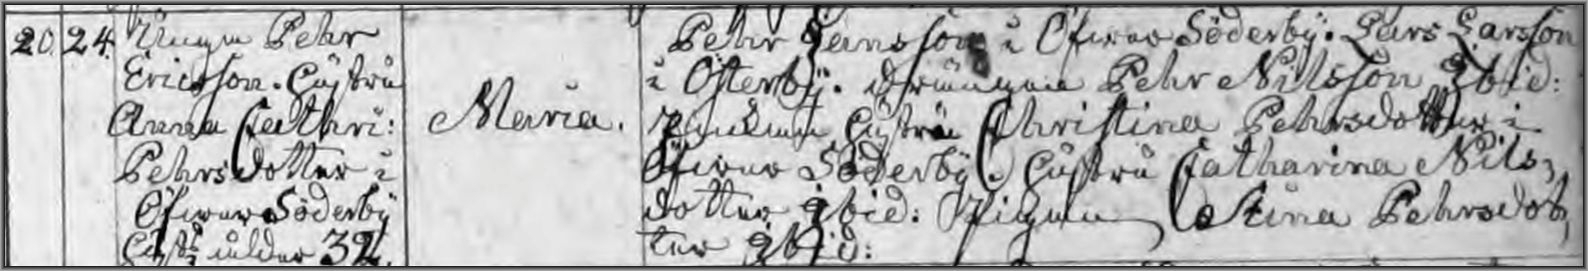 20. 24. Unga Pehr
Ericsson. Hustru
Anna Cathri:
Pehrsdotter i
Öfwer Söderby
Hust: ålder 32.
Maria.
Pehr Jansson i Öfwer Söderby. Lars Larsson
i Österby. Drängen Pehr Nilsson Ibid:
Hustru Christina Pehrsdotter i
Öfwer Söderby. Hustru Catharina Nils,
dotter Ibid: Pigan Stina Pehrsdot,
ter Ibid: